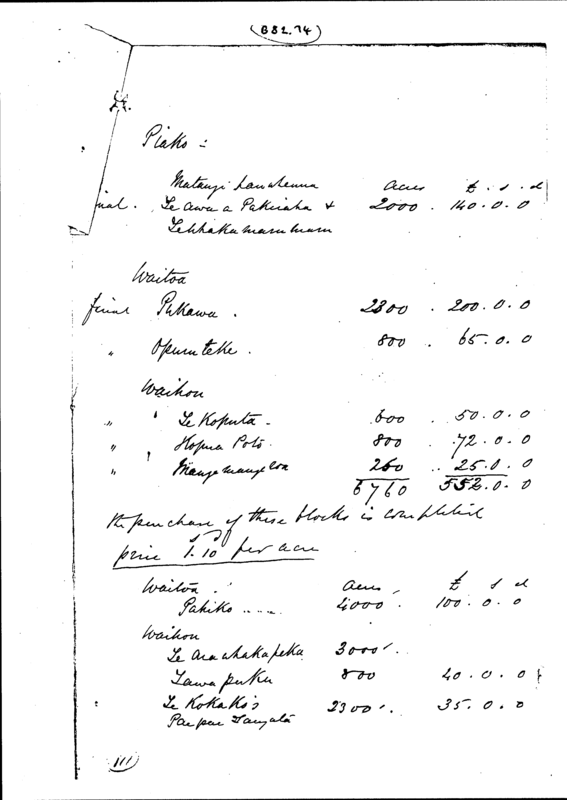 (B82.74)
Piako :-
Acres £ . s . d
nal . Te Awa a Pakiraha + 2000 . 140 . 0 . 0
Waitoa
final Pukawa . 2300 . 200 . 0 . 0
" Opuruteke . 800 . 65 . 0 . 0
Waihou
" ' Te Koputa - 600 . 50 . 0 . 0
" Hopua Poto . 800 . 72 . 0 . 0
" ' Mangemangeroa 260 .. 25 . 0 . 0
6760 552 . 0 . 0
the purchase of these blocks is completed
price 1.10 per acre
Waitoa . Acres , £ s d
Pakiko .... 4000 . 100 . 0 . 0
Waihou
Te Arawhakapeka 3000 ' .
Tawa puku 800 40 . 0 . 0
Te Kokako's 2300 ' . 35 . 0 . 0
Pae pae Tangata
111